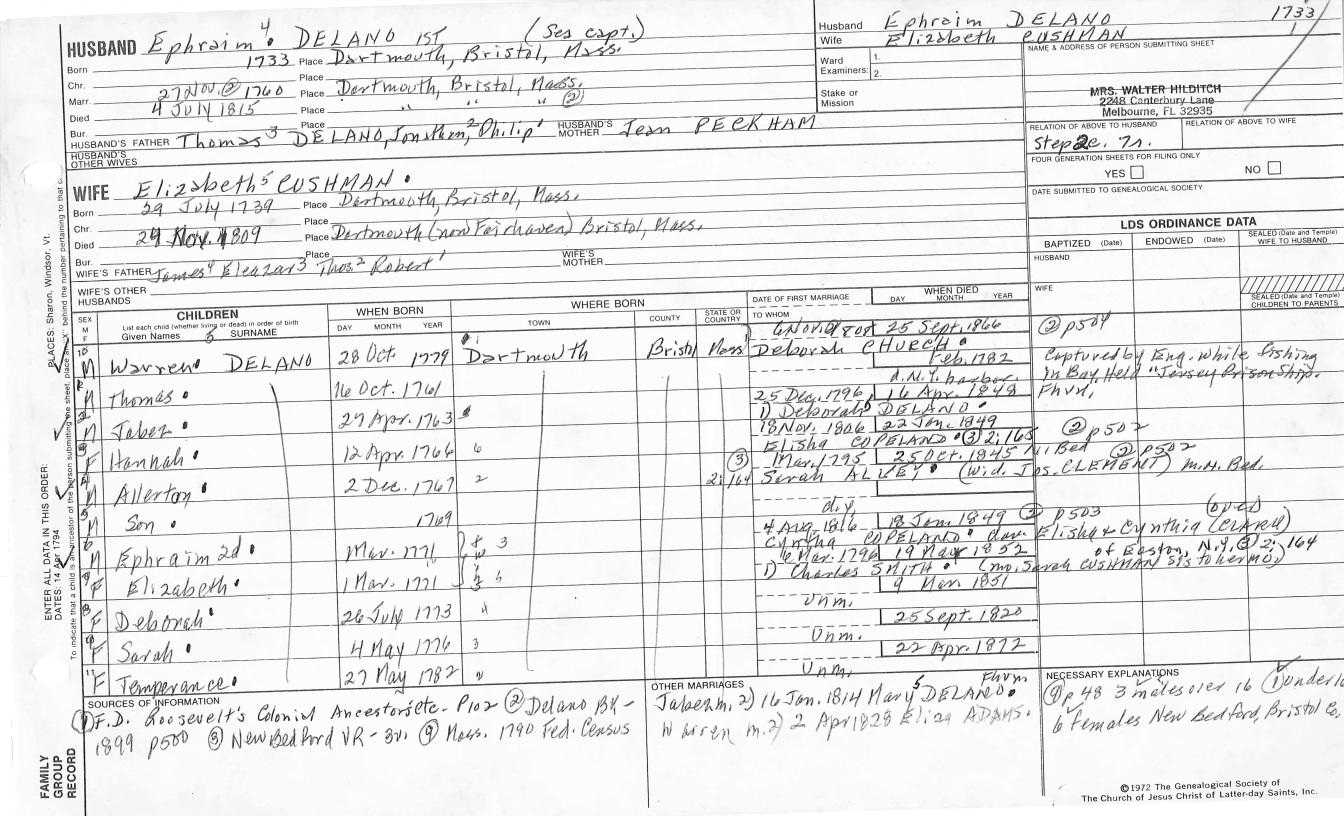 HUSBAND Ephraim⁴ DELANO 1ST (Sea capt.)
Born 1733 Place Dartmouth, Bristol, Mass.
Chr. Place
Marr. 27 Nov. ② 1760 Place Dartmouth, Bristol, Mass.
Died 4 July 1815 Place " " " ②
Bur. Place
HUSBAND'S FATHER Thomas³ DELANO, Jonathan,² Philip¹ HUSBAND'S MOTHER Jean PECKHAM
HUSBAND'S OTHER WIVES
WIFE Elizabeth⁵ CUSHMAN
Born 29 July 1739 Place Dartmouth, Bristol, Mass.
Chr. Place
Died 29 Nov. 1809 Place Dartmouth (now Fairhaven) Bristol, Mass.
Bur. Place
WIFE'S FATHER James⁴ Eleazar³ Thos² Robert¹ WIFE'S MOTHER
WIFE'S OTHER HUSBANDS
Husband Ephraim DELANO 1733
Wife Elizabeth CUSHMAN 1
Ward Examiners: 1.
2.
Stake or Mission
NAME & ADDRESS OF PERSON SUBMITTING SHEET
MRS. WALTER HILDITCH
2248 Canterbury Lane
Melbourne, FL 32935
RELATION OF ABOVE TO HUSBAND RELATION OF ABOVE TO WIFE
Step 2c. 7r.
FOUR GENERATION SHEETS FOR FILING ONLY
YES NO
DATE SUBMITTED TO GENEALOGICAL SOCIETY
LDS ORDINANCE DATA
BAPTIZED (Date) ENDOWED (Date) SEALED (Date and Temple) WIFE TO HUSBAND
HUSBAND
WIFE
SEALED (Date and Temple) CHILDREN TO PARENTS
SEX M F
CHILDREN
List each child (whether living or dead) in order of birth
Given Names SURNAME
WHEN BORN
DAY MONTH YEAR
WHERE BORN
TOWN COUNTY STATE OR COUNTRY
DATE OF FIRST MARRIAGE
TO WHOM
WHEN DIED
DAY MONTH YEAR
10 M Warren DELANO 28 Oct 1779 Dartmouth Bristol Mass 6 Nov. 1808 25 Sept. 1866 ② p504
Deborah CHURCH
M Thomas 16 Oct. 1761 Feb. 1782 Captured by Eng. while fishing
d. N.Y. harbor. in Bay. Held "Jersey Prison Ship.
2 M Jabez 27 Apr. 1763 25 Dec. 1796 16 Apr. 1848 Fhvn.
1) Deborah DELANO
3 F Hannah 12 Apr. 1766 6 18 Nov. 1806 22 Jan. 1849 ② p502
Elisha COPELAND ③ 2:165
4 M Allerton 2 Dec. 1767 2 ③ 2:164 Mar. 1795 25 Oct. 1845 N. Bed ② p502
Sarah ALVEY (wid. Jos. CLEMENT) m. N. Bed.
5 M Son 1769
d.y.
6 M Ephraim 2d 1 Mar. 1771 3 4 Aug. 1816 18 Jan. 1849 ② p503
Cynthia COPELAND dau. Elisha & Cynthia (CLARK)
7 F Elizabeth 1 Mar. 1771 6 Mar. 1796 19 May 1852 of Easton, N.Y. ③ 2:164
1) Charles SMITH (mo. Sarah CUSHMAN sis to her mo.)
8 F Deborah 26 July 1773 " 9 Mar. 1851
Unm.
9 F Sarah 4 May 1776 3 25 Sept. 1820
Unm.
11 F Temperance 27 May 1782 " 22 Apr. 1872
Unm.
SOURCES OF INFORMATION
① F.D. Roosevelt's Colonial Ancestors etc. P102 ② Delano BK-
1899 p500 ③ New Bedford VR - 3v. ④ Mass. 1790 Fed. Census
OTHER MARRIAGES
Fhvn
Jabez m. 2) 16 Jan. 1814 Mary⁵ DELANO.
Warren m. 2) 2 Apr 1828 Eliza ADAMS.
NECESSARY EXPLANATIONS
④ p 48 3 males over 16 ① under 16
6 females New Bedford, Bristol Co.
©1972 The Genealogical Society of
The Church of Jesus Christ of Latter-day Saints, Inc.
FAMILY GROUP RECORD
ENTER ALL DATA IN THIS ORDER:
DATES: 14 Apr 1794
PLACES: Sharon, Windsor, Vt.